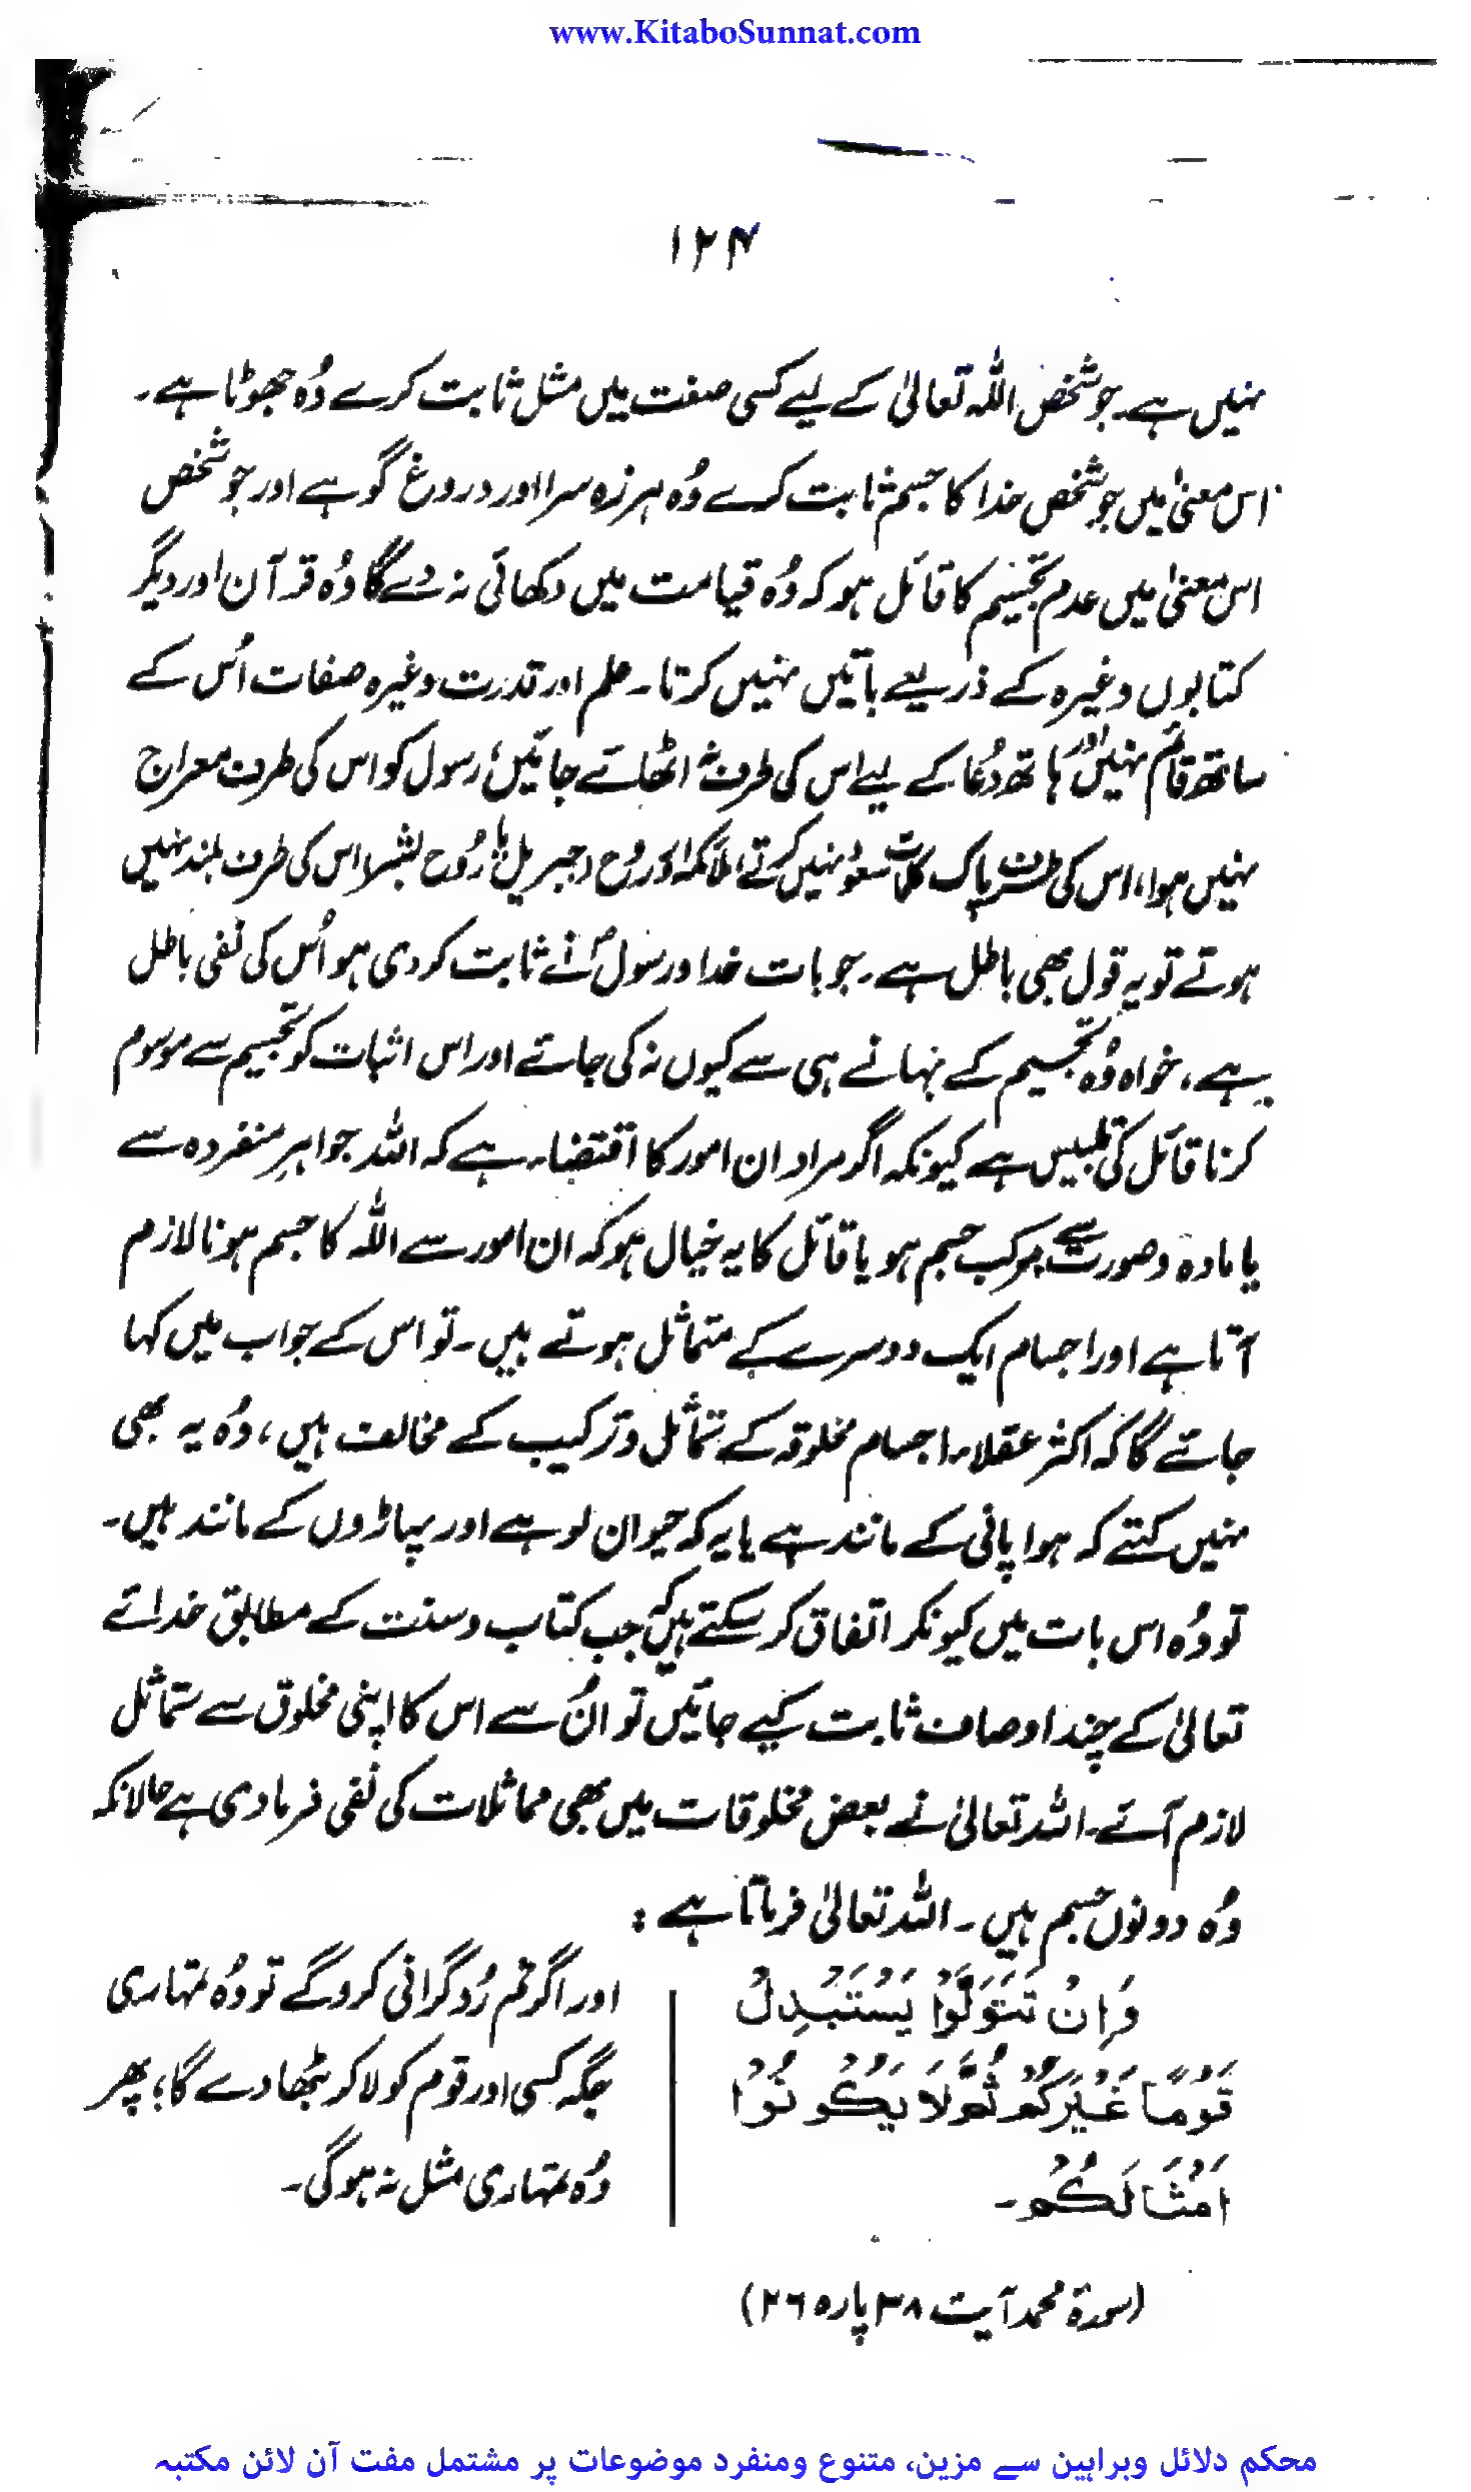 www.KitaboSunnat.com
۱۲۴
نہیں ہے۔ جو شخص اللہ تعالیٰ کے لیے کسی صفت میں مثل ثابت کرے وُہ جھوٹا ہے۔
اس معنیٰ میں جو شخص خدا کا جسم ثابت کرے وُہ ہرزہ سرا اور دروغ گو ہے اور جو شخص
اس معنیٰ میں عدم تجسیم کا قائل ہو کہ وُہ قیامت میں دکھائی نہ دے گا وُہ قرآن اور دیگر
کتابوں وغیرہ کے ذریعے باتیں نہیں کرتا۔ علم اور قدرت وغیرہ صفات اُس کے
ساتھ قائم نہیں اور ہاتھ دُعا کے لیے اس کی طرف نہ اٹھائے جائیں، رسول کو اس کی طرف معراج
نہیں ہوا، اس کی طرف پاک کلمات صعود نہیں کرتے، ملائکہ اور روح (جبریل یا رُوح بشر) اس کی طرف بلند نہیں
ہوتے تو یہ قول بھی باطل ہے۔ جو بات خدا و رسولؐ نے ثابت کر دی ہو اُس کی نفی باطل
ہے، خواہ وُہ تجسیم کے بہانے ہی سے کیوں نہ کی جائے اور اس اثبات کو تجسیم سے موسوم
کرنا قائل کی تلبیس ہے کیونکہ اگر مراد ان امور کا اقتضاء ہے کہ اللہ جواہرِ منفردہ سے
یا مادہ و صورت سے مرکب جسم ہو یا قائل کا یہ خیال ہو کہ ان امور سے اللہ کا جسم ہونا لازم
آتا ہے اور اجسام ایک دوسرے کے متماثل ہوتے ہیں۔ تو اس کے جواب میں کہا
جائے گا کہ اکثر عقلاء اجسام مخلوقہ کے تماثل و ترکیب کے مخالف ہیں، وُہ یہ بھی
نہیں کہتے کہ ہوا پانی کے مانند ہے یا یہ کہ حیوان لوہے اور پہاڑوں کے مانند ہیں۔
تو وُہ اس بات میں کیونکر اتفاق کر سکتے ہیں کہ جب کتاب و سنت کے مطابق خدائے
تعالیٰ کے چند اوصاف ثابت کیے جائیں تو اُن سے اس کا اپنی مخلوق سے متماثل
لازم آئے۔ اللہ تعالیٰ نے بعض مخلوقات میں بھی مماثلات کی نفی فرما دی ہے حالانکہ
وُہ دونوں جسم ہیں۔ اللہ تعالیٰ فرماتا ہے :
وَاِنْ تَتَوَلَّوْا يَسْتَبْدِلْ
قَوْمًا غَيْرَكُمْ ثُمَّ لَا يَكُوْنُوْا
اَمْثَالَكُمْ۔
(سورۃ محمد آیت ۳۸ پارہ ۲۶)
اور اگر تم رُوگردانی کرو گے تو وُہ تمہاری
جگہ کسی اور قوم کو لا کر بٹھا دے گا؛ پھر
وُہ تمہاری مثل نہ ہوگی۔
محکم دلائل وبراہین سے مزین، متنوع ومنفرد موضوعات پر مشتمل مفت آن لائن مکتبہ